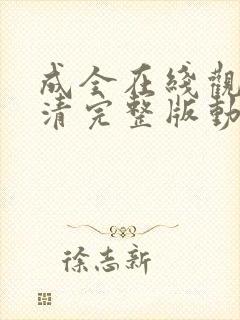 成全在线觀
清完整版動
徐志新